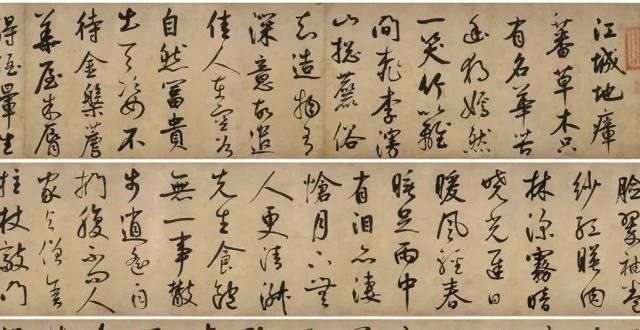 江城地瘴
蕃草木只
有名華苦
幽獨嫣然
一笑竹籬
間桃李漫
山總麄俗
知造物有
深意故遣
佳人在空谷
自然富貴
出天姿不
待金槃薦
華屋朱脣
得酒暈生
臉翠袖卷
紗紅暎肉
林深霧暗
曉光遲日
暖風輕春
睡足雨中
有泪亦淒
愴月下無
人更清淑
先生食飽
無一事散
步逍遙自
捫腹不問人
家與僧舍
拄杖敲門